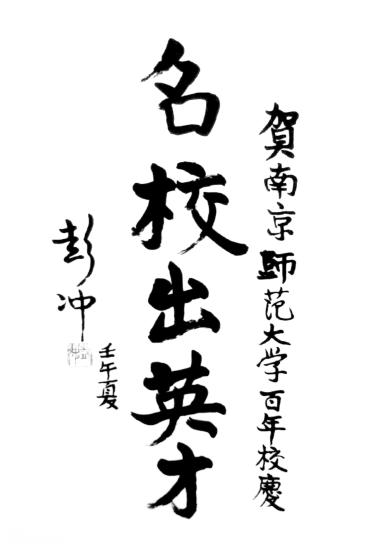 賀南京師范大学百年校慶
名校出英才
彭冲
壬午夏